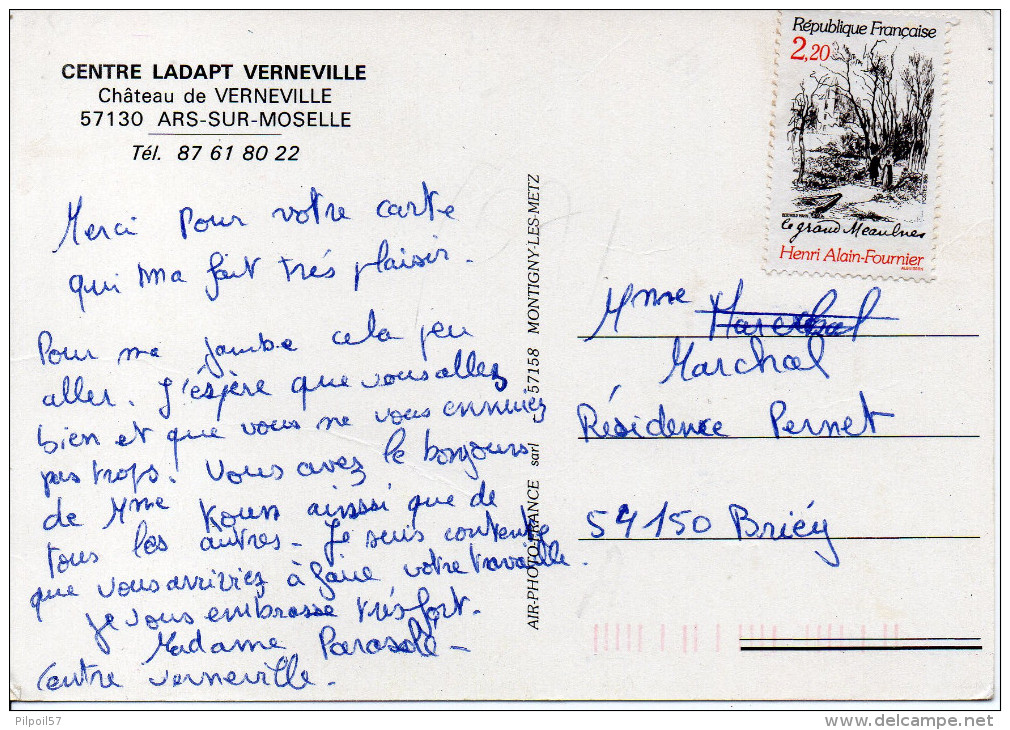 CENTRE LADAPT VERNEVILLE
Château de VERNEVILLE
57130 ARS-SUR-MOSELLE
Tél. 87 61 80 22
Merci pour votre carte
qui ma fait très plaisir.
Pour ma jambe cela peu
aller. J'éspère que vous allez
bien et que vous ne vous ennuiez
pas trops. Vous avez le bonjours
de Mme ainssi que de
tous les autres. Je suis contente
que vous arriviez à faire votre travaille.
Je vous embrasse très fort.
Madame
Centre Verneville.
AIR-PHOTO-FRANCE sarl 57158 MONTIGNY-LES-METZ
République Française
2,20
le grand Meaulnes
Henri Alain-Fournier
Mme Marechal
Marchal
Résidence Pernet
54150 Briéy
Pilpoil57
delcampe.net